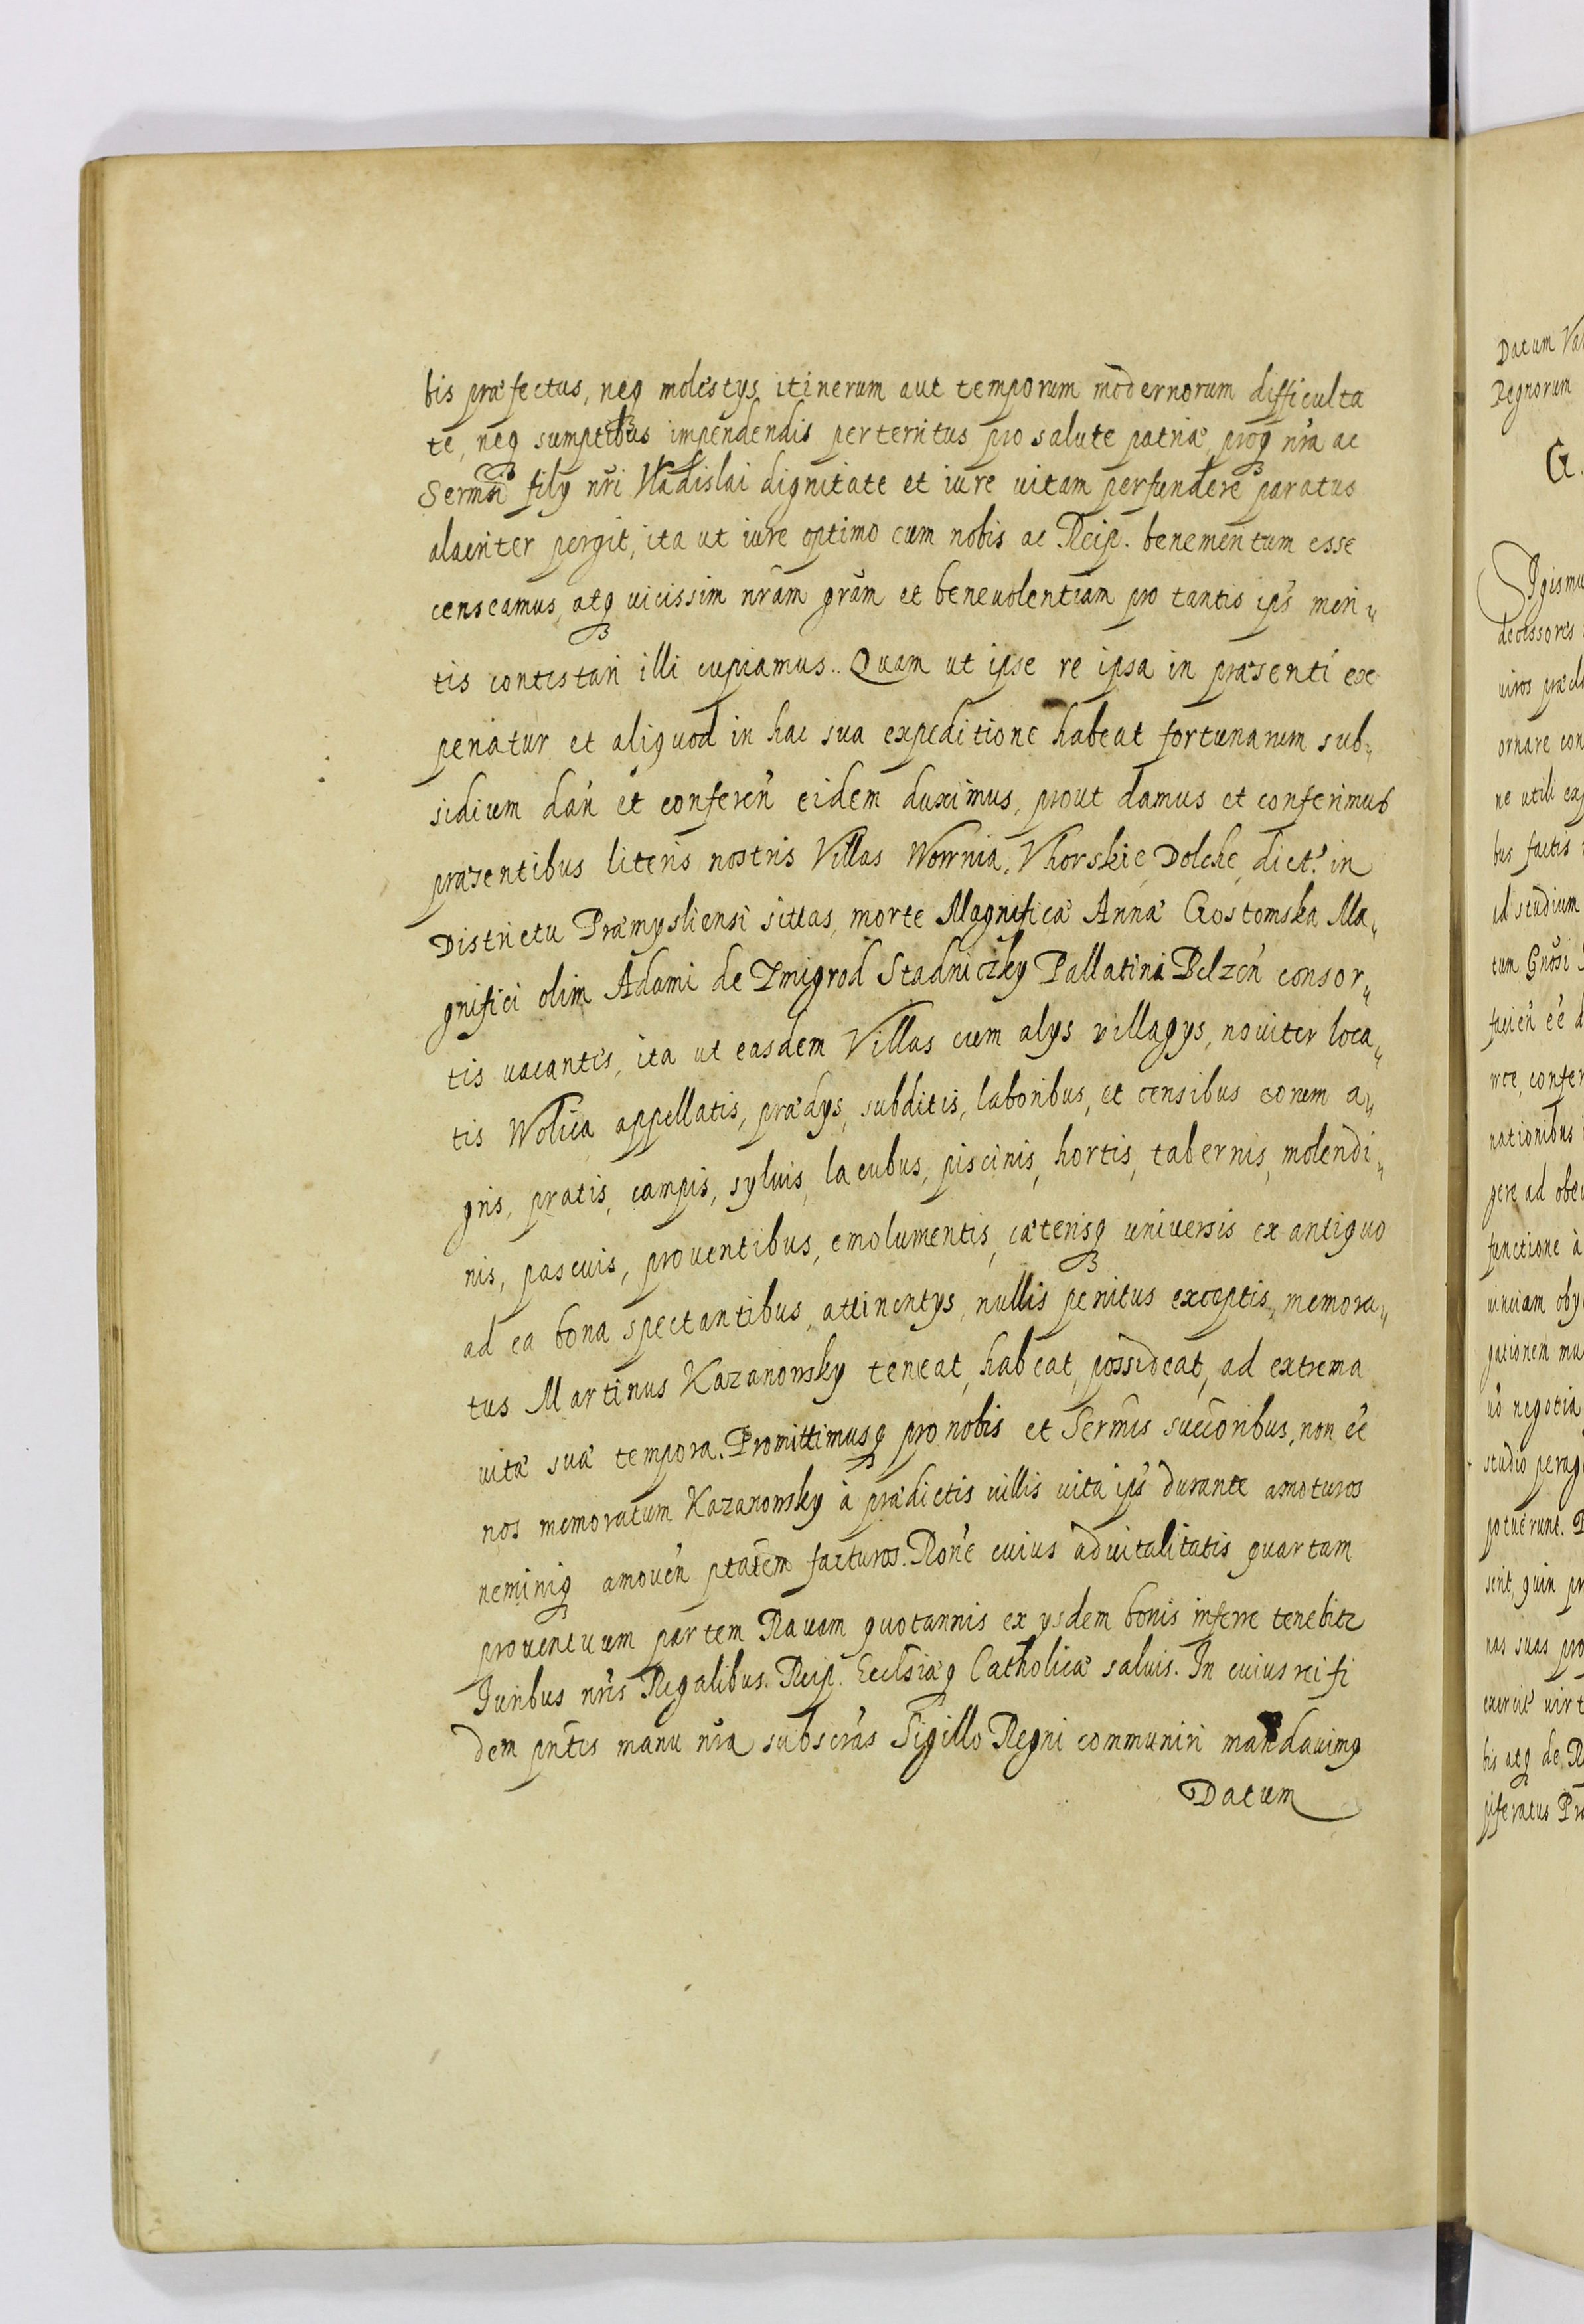 bis præfectus, neq molestys itinerum aut temporum modernorum difficulta
te, neq sumptibus impendendis perterritus pro salute patriæ, proq nr̃a ac
Sermi filij nr̃i Vladislai dignitate et iure uitam perfundere paratus
alacriter pergit, ita ut iure optimo eum nobis ac Reip. benemeritum esse
censeamus, atq uicissim nr̃am gr̃am et beneuolentiam pro tantis ips meri„
tis contestari illi cupiamus. Quam ut ipse re ipsa in præsenti ex
periatur et aliquod in hac sua expeditione habeat fortunarum sub„
sidium dan̄ et conferen̄ eidem duximus, prout damus et conferimus
præsentibus literis nostris Villas Wornia, Vhorskie, Dolche, dict. in
Districtu Præmysliensi sittas, morte Magnificæ Annæ Gostomska Ma„
gnifici olim Adami de Zmigrod Stadniczky Pallatini Belzen̄ consor„
tis uacantes, ita ut easdem Villas cum alys villagys, nouiter loca„
tis Wolica appellatis, prædys, subditis, laboribus, et censibus eorum a„
gris, pratis, campis, syluis, lacubus, piscinis, hortis, tabernis, molendi„
nis, pascuis, prouentibus, emolumentis, cæterisq uniuersis ex antiquo
ad ea bona spectantibus, attinentys, nullis penitus exceptis, memora„
tus Martinus Kazanowsky teneat, habeat, possideat, ad extrema
uitæ suæ tempora. Promittimusq pro nobis et Serm̃is succoribus, non ẽe
nos memoratum Kazanowsky à prædictis uillis uita ips durante amoturos
neminiq amouen̄ ptatem facturos. Rone cuius aduitalitatis quartam
prouentuum partem Rauam quotannis ex ysdem bonis inferre tenebitr
Iuribus nr̃is Regalibus. Reip. Ecclsiæq Catholicæ saluis. In cuius rei fi
dem pñtes manu nr̃a subscrãs Sigillo Regni communiri mandauimq
Datum
Datum Va
Regnorum
G.
Sigismu
decessores
uiros præcl
ornare con
ne utili ex
bus factis
id studium
tum Gnosi
facien̄ ẽe d
rationibus
gere ad obe
functione à
uinciam oby
gationem mu
uo negotia
studio perag
potuerunt.
sent, quin pr
nas suas pro
exercit uirt
bis atq de R